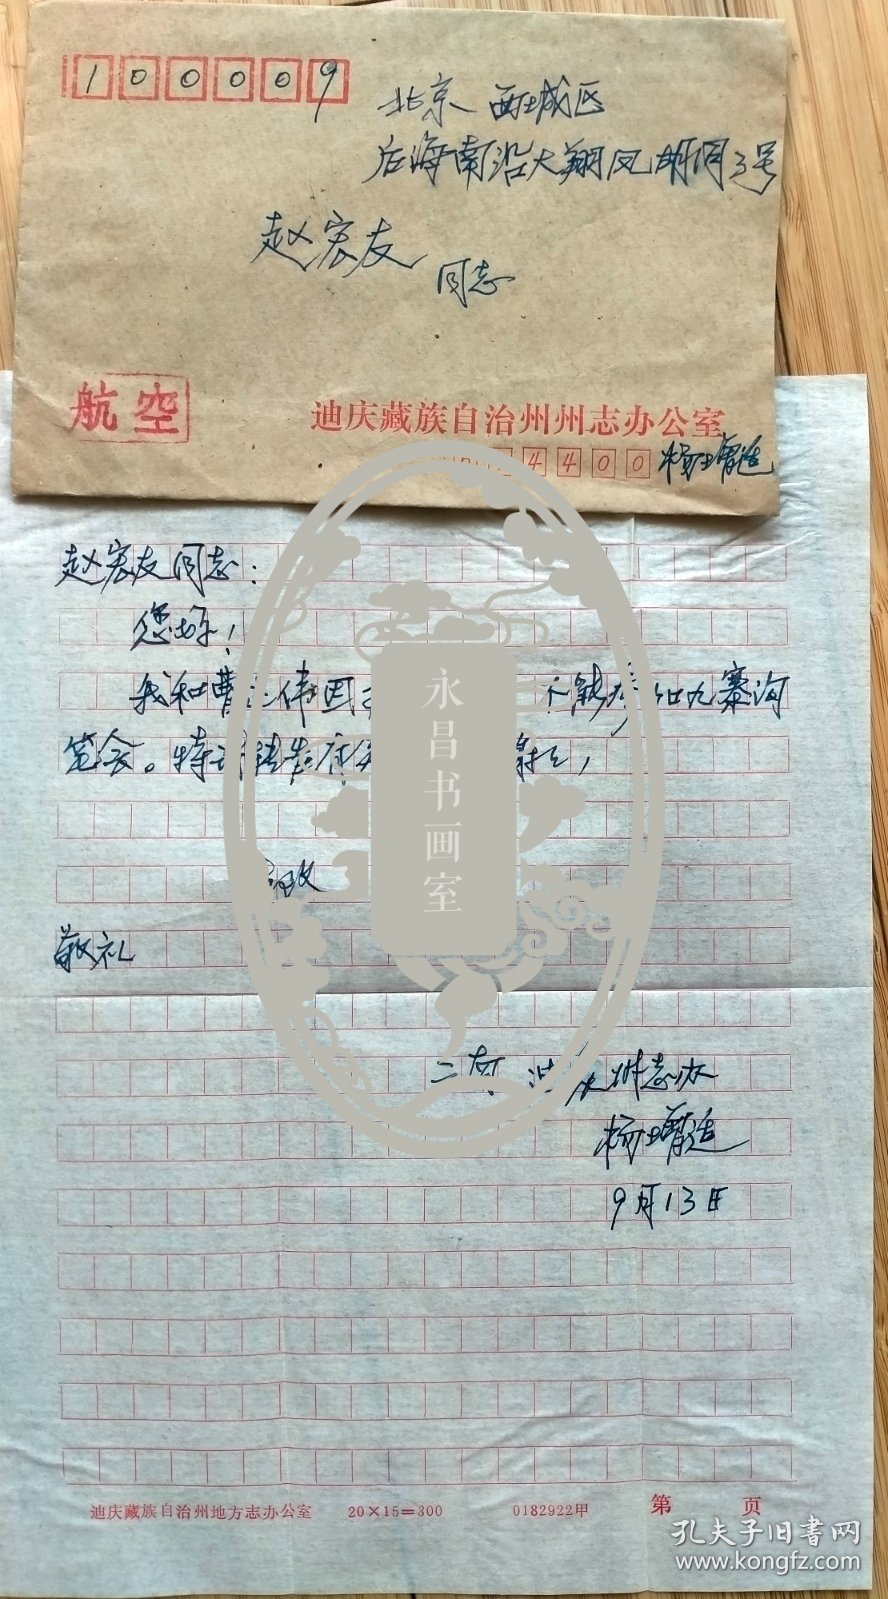 100009
北京 西城区
后海南沿大翔凤胡同3号
赵宏友
同志
航空
迪庆藏族自治州州志办公室
4400 杨增适
赵宏友同志:
您好!
我和曹 伟因 不能参加九寨沟
笔会。特请转告
敬礼
永昌书画室
云南 迪庆州志办
杨增适
9月13日
迪庆藏族自治州地方志办公室 20×15=300 0182922甲 第 页
孔夫子旧书网
www.kongfz.com